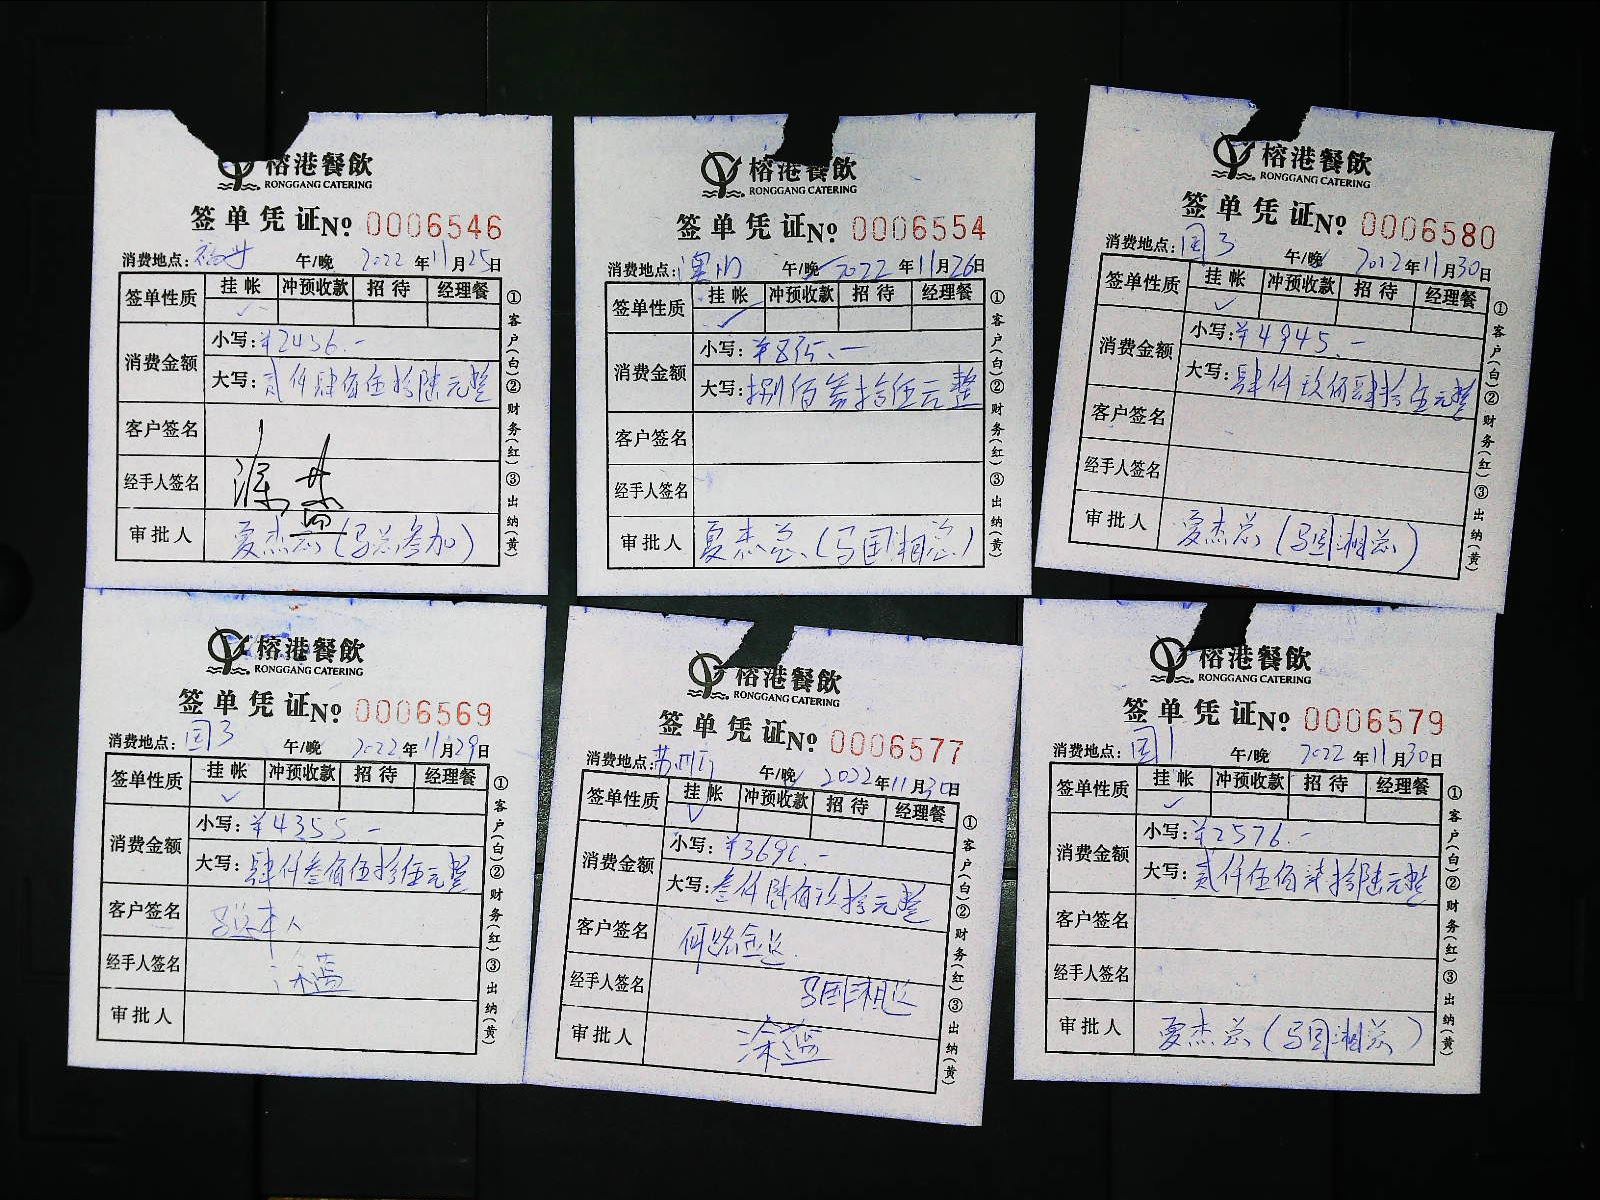 榕港餐飲
RONGGANG CATERING
签单凭证 No. 0006546
消费地点： 午/晚 2022年11月25日
签单性质 挂帐 冲预收款 招待 经理餐
✓
消费金额 小写：¥2456.—
大写：贰仟肆佰伍拾陆元整
客户签名
经手人签名 涂蓝
审批人 夏杰总（马总参加）
①客户(白)②财务(红)③出纳(黄)
榕港餐飲
RONGGANG CATERING
签单凭证 No. 0006554
消费地点：澳门 午/晚✓ 2022年11月26日
签单性质 挂帐 冲预收款 招待 经理餐
✓
消费金额 小写：¥835.—
大写：捌佰叁拾伍元整
客户签名
经手人签名
审批人 夏杰总（马国湘总）
①客户(白)②财务(红)③出纳(黄)
榕港餐飲
RONGGANG CATERING
签单凭证 No. 0006580
消费地点：国3 午/晚✓ 2022年11月30日
签单性质 挂帐 冲预收款 招待 经理餐
✓
消费金额 小写：¥4945.—
大写：肆仟玖佰肆拾伍元整
客户签名
经手人签名
审批人 夏杰总（马国湘总）
①客户(白)②财务(红)③出纳(黄)
榕港餐飲
RONGGANG CATERING
签单凭证 No. 0006569
消费地点：国3 午/晚 2022年11月29日
签单性质 挂帐 冲预收款 招待 经理餐
✓
消费金额 小写：¥4355—
大写：肆仟叁佰伍拾伍元整
客户签名 马总本人
经手人签名 涂蓝
审批人
①客户(白)②财务(红)③出纳(黄)
榕港餐飲
RONGGANG CATERING
签单凭证 No. 0006577
消费地点：苏 午/晚✓ 2022年11月30日
签单性质 挂帐 冲预收款 招待 经理餐
✓
消费金额 小写：¥3690.—
大写：叁仟陆佰玖拾元整
客户签名 何路金总
经手人签名 马国湘总
审批人 涂蓝
①客户(白)②财务(红)③出纳(黄)
榕港餐飲
RONGGANG CATERING
签单凭证 No. 0006579
消费地点：国1 午/晚 2022年11月30日
签单性质 挂帐 冲预收款 招待 经理餐
✓
消费金额 小写：¥2576.—
大写：贰仟伍佰柒拾陆元整
客户签名
经手人签名
审批人 夏杰总（马国湘总）
①客户(白)②财务(红)③出纳(黄)